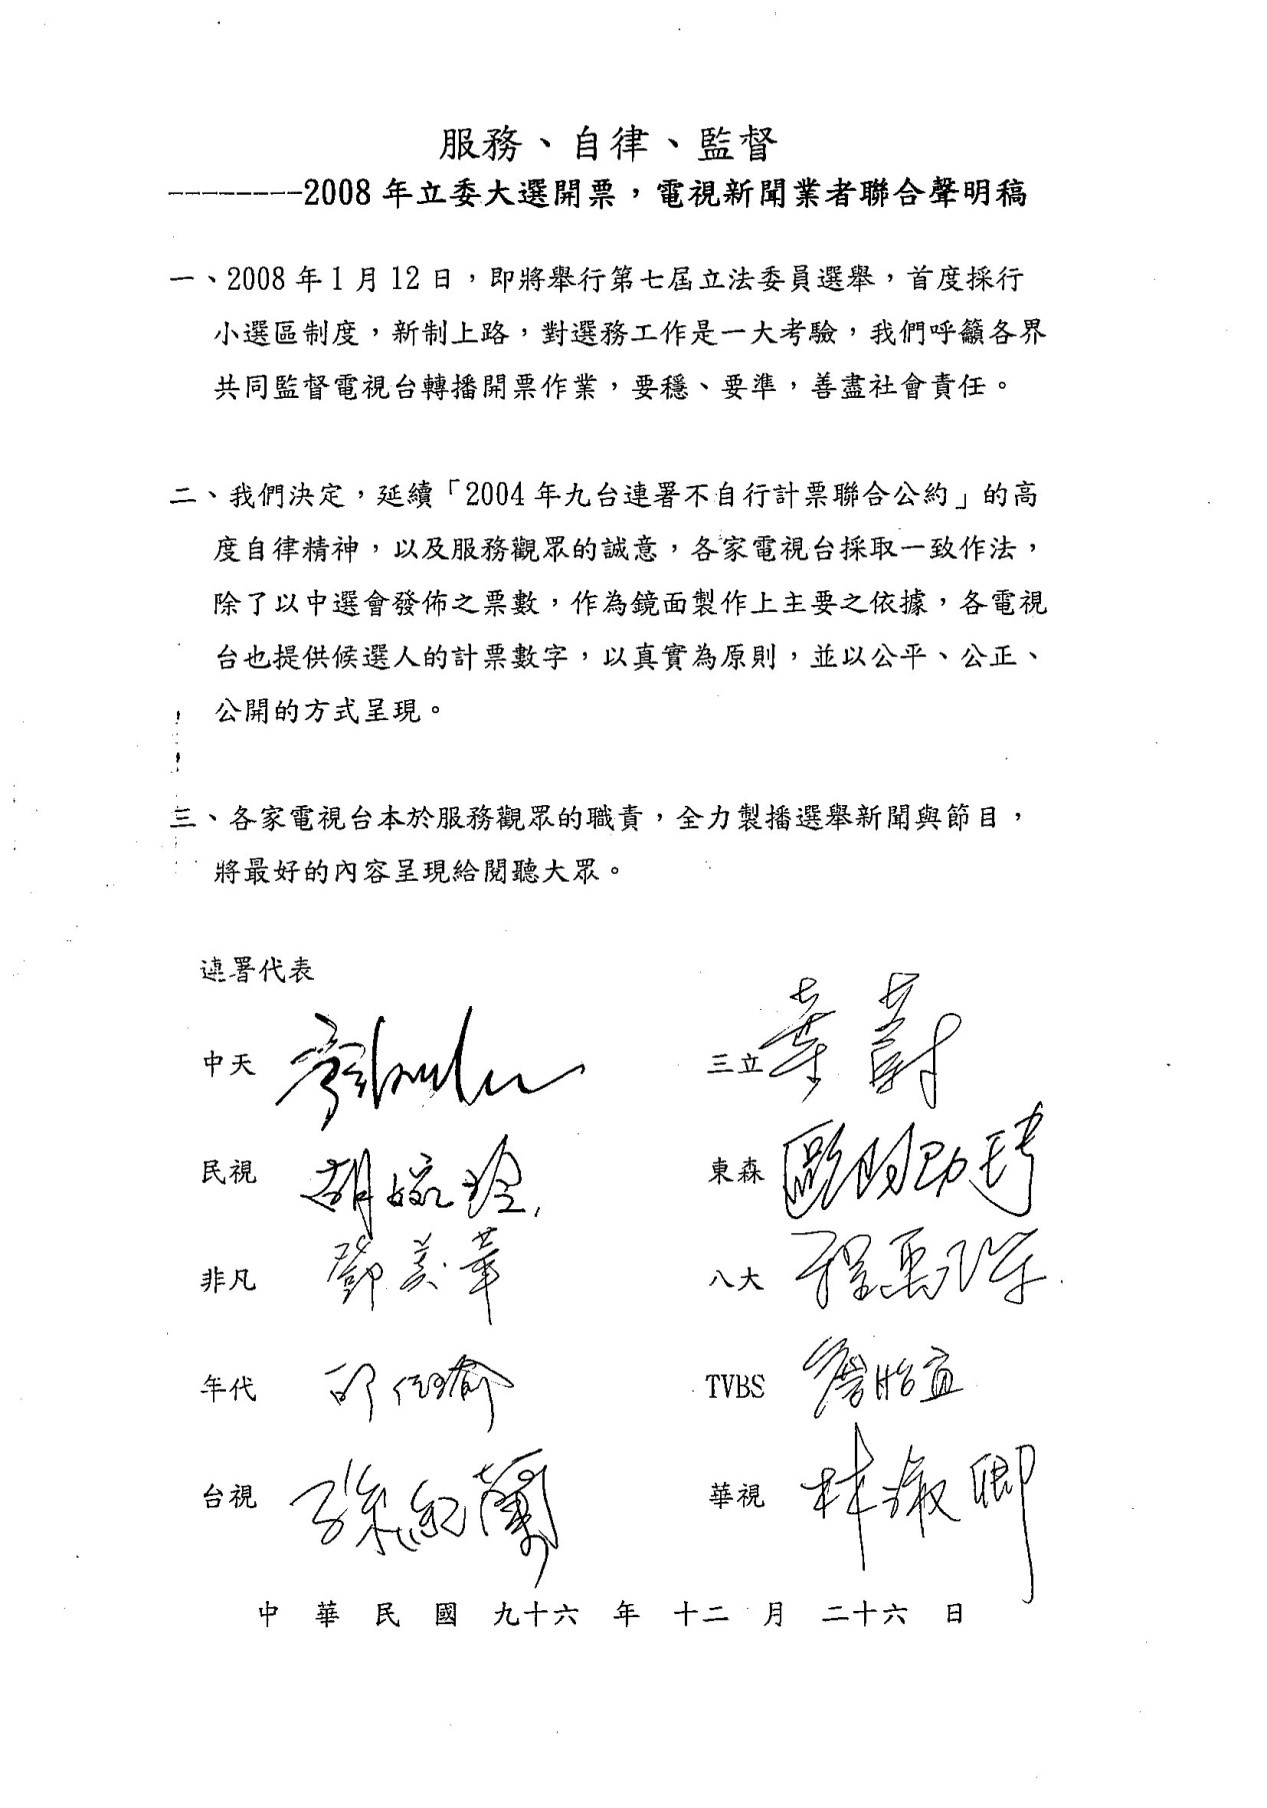 服務、自律、監督
--------2008年立委大選開票，電視新聞業者聯合聲明稿
一、2008年1月12日，即將舉行第七屆立法委員選舉，首度採行
小選區制度，新制上路，對選務工作是一大考驗，我們呼籲各界
共同監督電視台轉播開票作業，要穩、要準，善盡社會責任。
二、我們決定，延續「2004年九台連署不自行計票聯合公約」的高
度自律精神，以及服務觀眾的誠意，各家電視台採取一致作法，
除了以中選會發佈之票數，作為鏡面製作上主要之依據，各電視
台也提供候選人的計票數字，以真實為原則，並以公平、公正、
公開的方式呈現。
三、各家電視台本於服務觀眾的職責，全力製播選舉新聞與節目，
將最好的內容呈現給閱聽大眾。
連署代表
中天
三立 葉蔚
民視 胡婉玲
東森
非凡 鄧美華
八大
年代 邱佳瑜
TVBS 詹怡宜
台視 孫紀蘭
華視 林淑卿
中華民國九十六年十二月二十六日